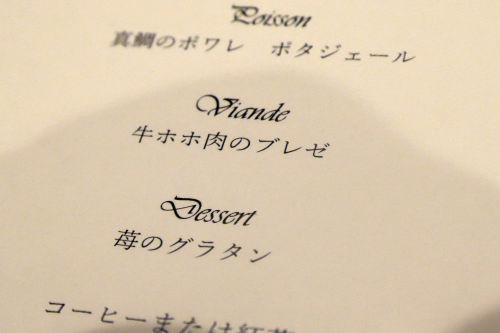 Poisson
真鯛のポワレ　ポタジェール
Viande
牛ホホ肉のブレゼ
Dessert
苺のグラタン
コーヒーまたは紅茶